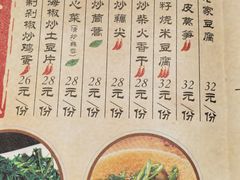 家豆腐 32元
皮莴笋 32元/份
籽烧米豆腐 32元/份
炒柴火香干 28元/份
炒藕尖 28元/份
炒茼蒿 28元/份
心菜 28元/份
海椒炒土豆片 28元/份
剁椒炒鸡蛋 26元/份